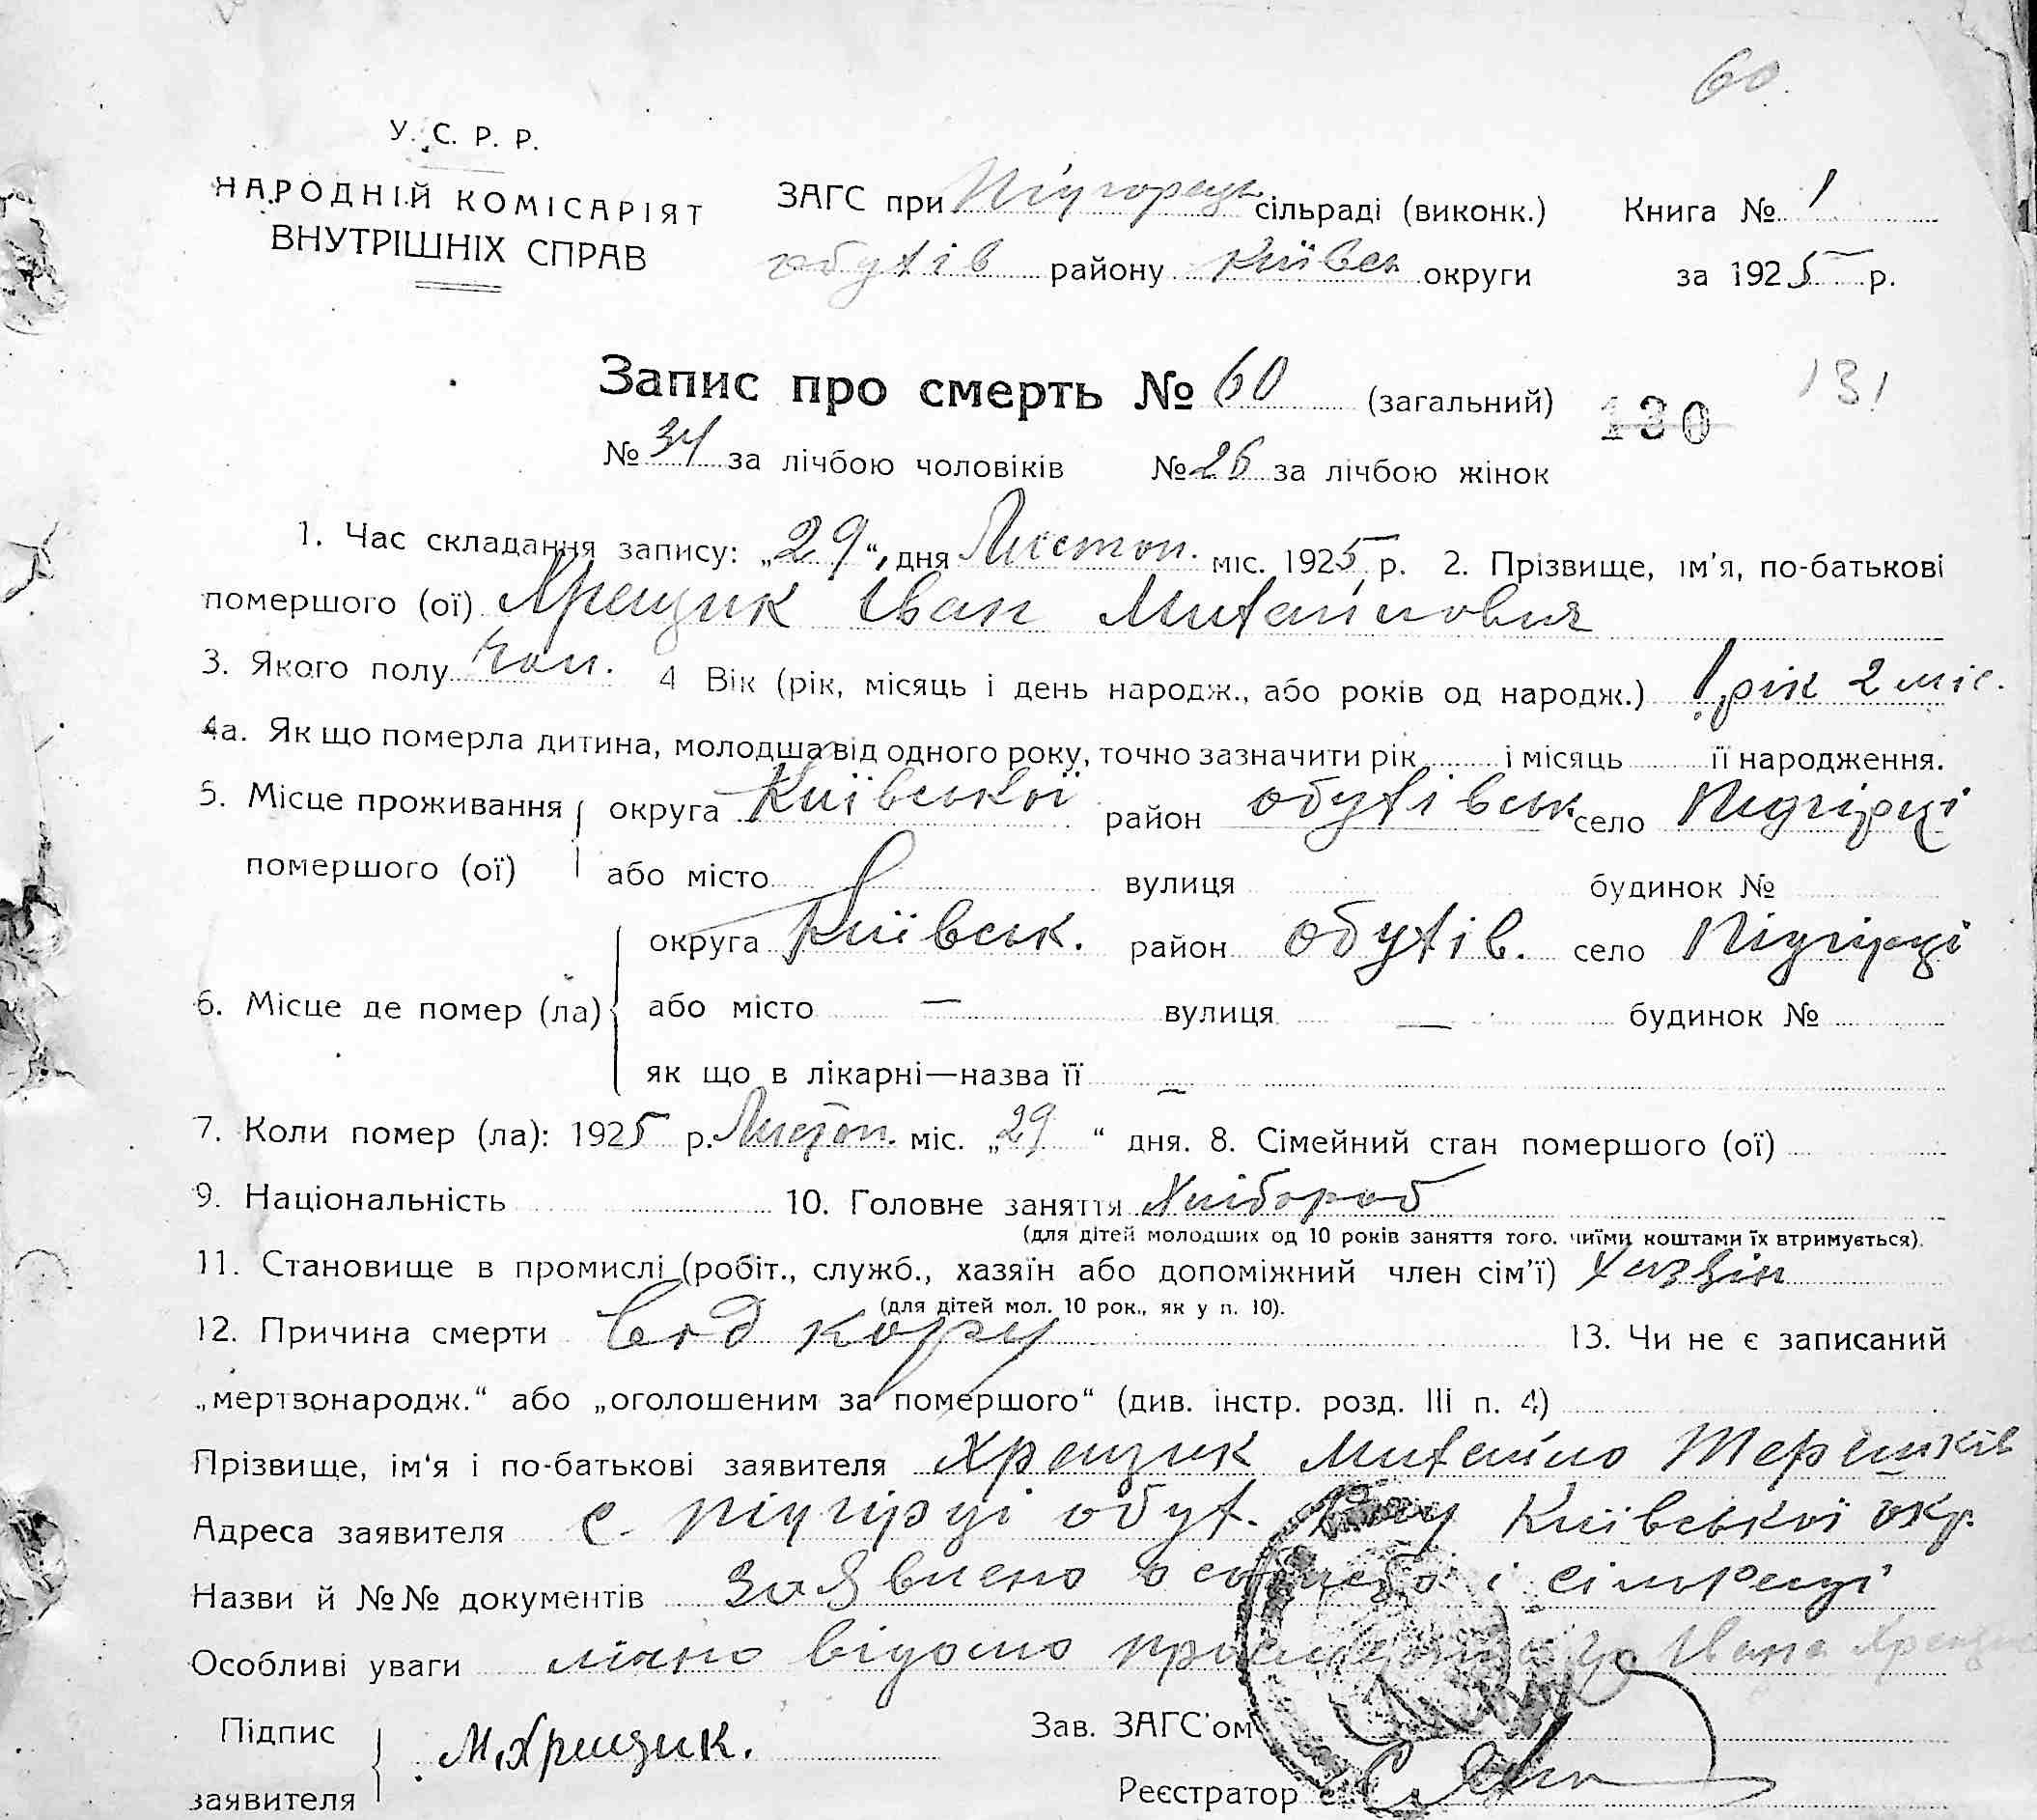 60.
У. С. Р. Р.
НАРОДНІЙ КОМІСАРІЯТ
ВНУТРІШНІХ СПРАВ
ЗАГС при Підгорець сільраді (виконк.) Книга № 1
обухів району Київськ округи за 1925 р.
Запис про смерть № 60 (загальний) 130 131
№ 34 за лічбою чоловіків № 26 за лічбою жінок
1. Час складання запису: „29“ дня Листоп. міс. 1925 р. 2. Прізвище, ім'я, по-батькові
помершого (ої) Хрещик Іван Михайлович
3. Якого полу чол. 4 Вік (рік, місяць і день народж., або років од народж.) 1 рік 2 міс.
4а. Як що померла дитина, молодша від одного року, точно зазначити рік і місяць її народження.
5. Місце проживання округа Київської район обухівськ село Підгірці
помершого (ої) або місто вулиця будинок №
округа Київськ. район обухів. село Підгірці
6. Місце де помер (ла) або місто — вулиця — будинок №
як що в лікарні—назва її —
7. Коли помер (ла): 1925 р. Листоп. міс. „29“ дня. 8. Сімейний стан помершого (ої)
9. Національність 10. Головне заняття Хлібороб
(для дітей молодших од 10 років заняття того, чиїми коштами їх втримується).
11. Становище в промислі (робіт., служб., хазяїн або допоміжний член сім'ї) Хазяїн
(для дітей мол. 10 рок., як у п. 10).
12. Причина смерти Від кору 13. Чи не є записаний
„мертвонародж.“ або „оголошеним за помершого“ (див. інстр. розд. III п. 4)
Прізвище, ім'я і по-батькові заявителя Хрещик Михайло Терешків
Адреса заявителя с. Підгірці обух. Київської окр.
Назви й №№ документів заявлено особисто і сільраді
Особливі уваги лічно відомо Івана Хрещик
Підпис
заявителя М. Хрещик.
Зав. ЗАГС'ом
Реєстратор